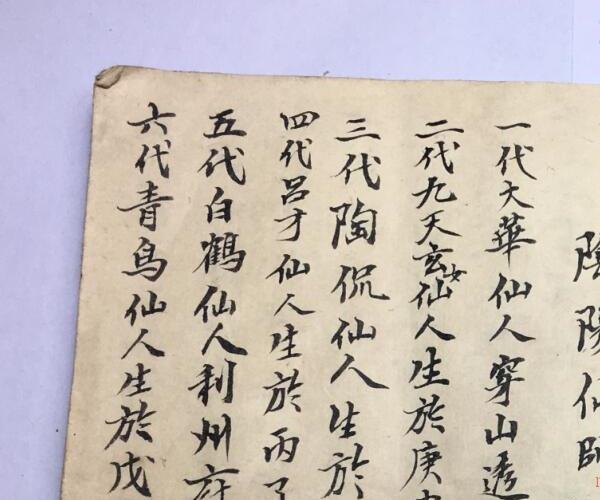 陰陽仙師
一代大華仙人穿山透
二代九天玄女仙人生於庚
三代陶侃仙人生於
四代呂才仙人生於丙子
五代白鶴仙人利州府
六代青鳥仙人生於戊